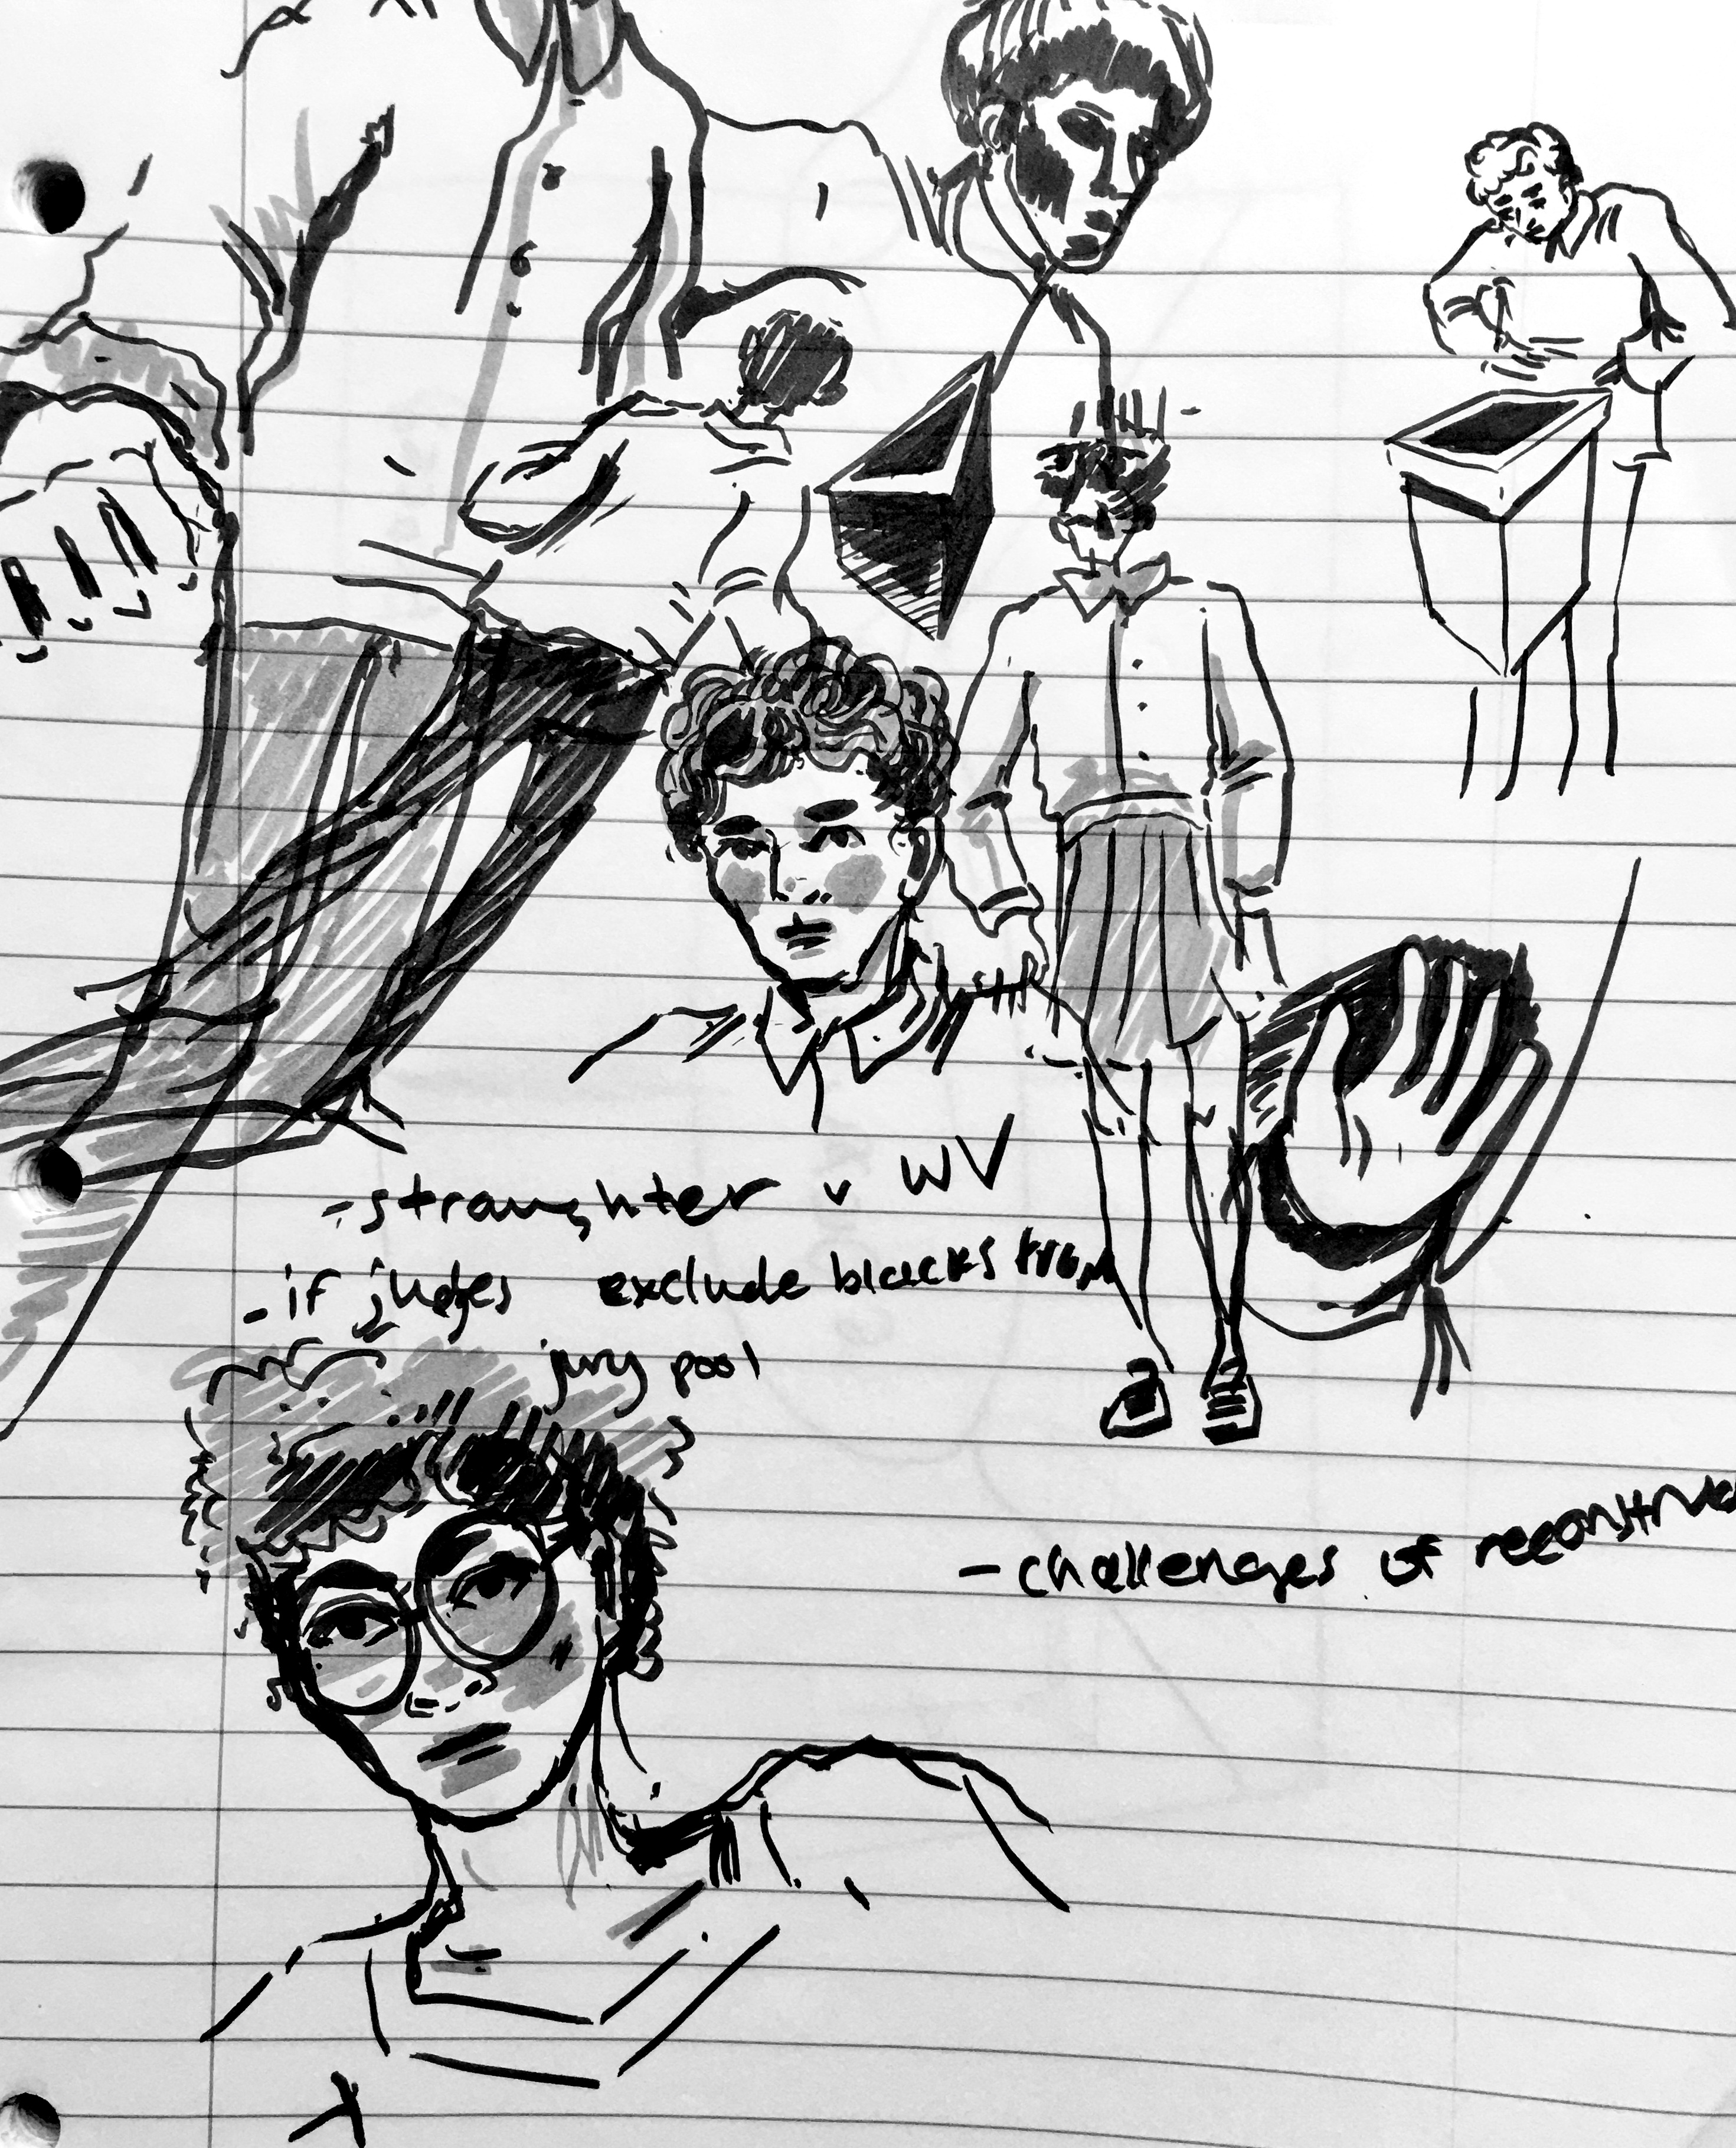 - straughter v WV
- if judges exclude blacks from
jury pool
- challenges of reconstru